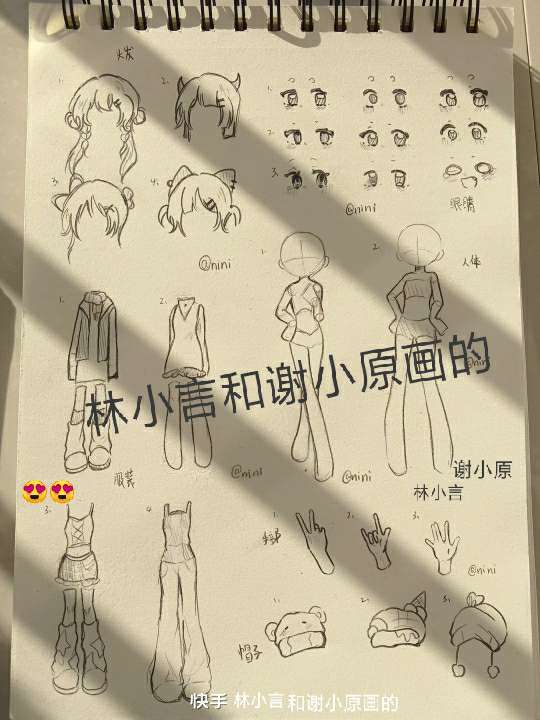 头发
1.
2.
3.
4.
1.
2.
3.
@nini
眼睛
@nini
1.
2.
人体
1.
2.
林小言和谢小原画的
@nini
服装
@nini
@nini
谢小原
林小言
3.
4.
1.
2.
3.
@nini
1.
2.
3.
帽子
快手 林小言和谢小原画的